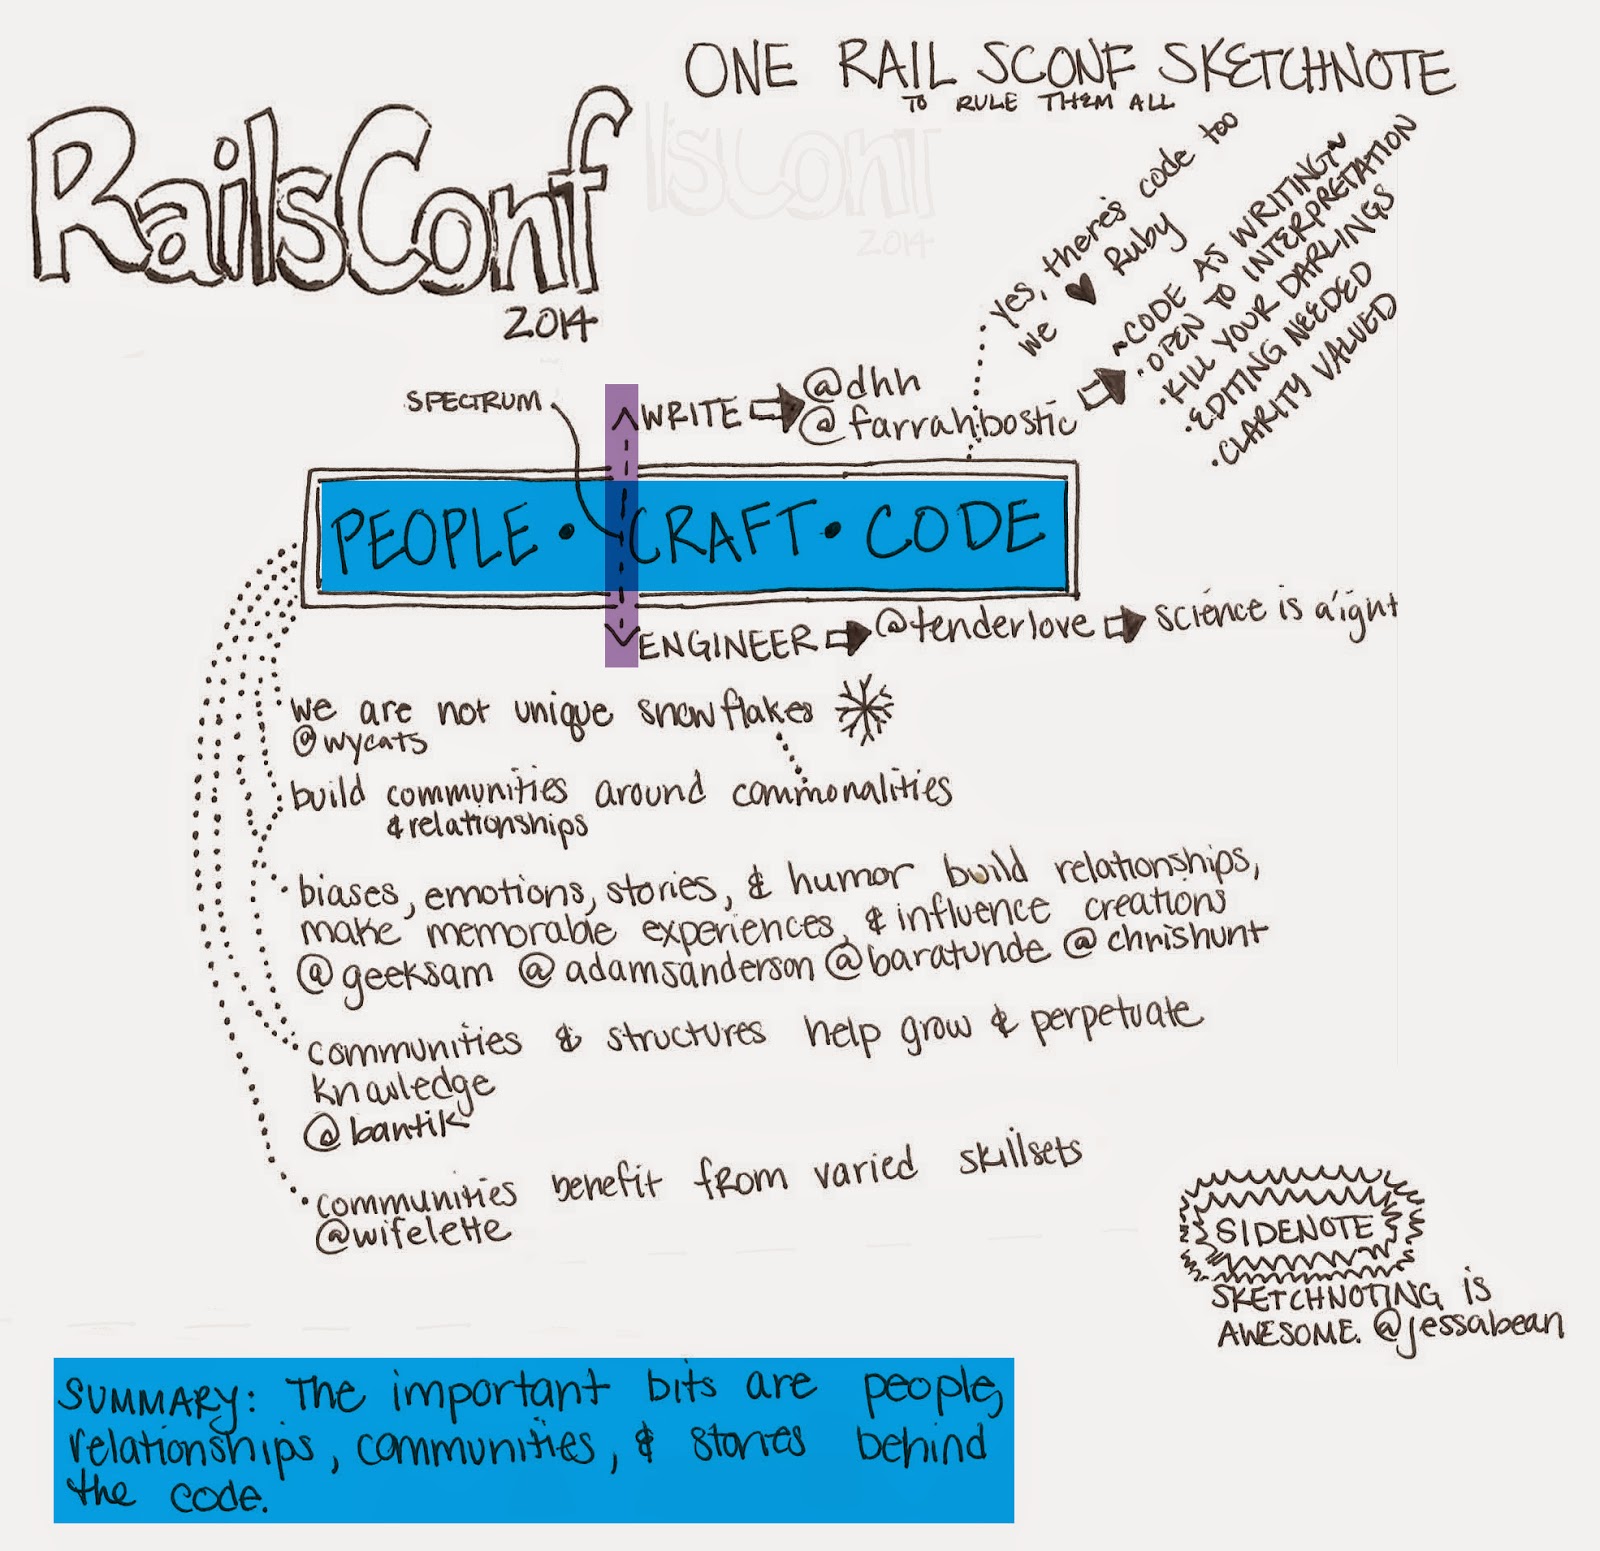 ONE RAILSCONF SKETCHNOTE
TO RULE THEM ALL
RailsConf
2014
lsConf
2014
yes, there's code too
we ♥ Ruby
~CODE AS WRITING~
• OPEN TO INTERPRETATION
• KILL YOUR DARLINGS
• EDITING NEEDED
• CLARITY VALUED
SPECTRUM
WRITE ⇨ @dhh
@farrahbostic ⇨
PEOPLE • CRAFT • CODE
ENGINEER ⇨ @tenderlove ⇨ science is a'ight
we are not unique snowflakes
@wycats
build communities around commonalities
& relationships
• biases, emotions, stories, & humor build relationships,
make memorable experiences, & influence creations
@geeksam @adamsanderson @baratunde @chrishunt
communities & structures help grow & perpetuate
knowledge
@bantik
• communities benefit from varied skillsets
@wifelette
SIDENOTE
SKETCHNOTING is
AWESOME. @jessabean
SUMMARY: The important bits are people,
relationships, communities, & stories behind
the code.